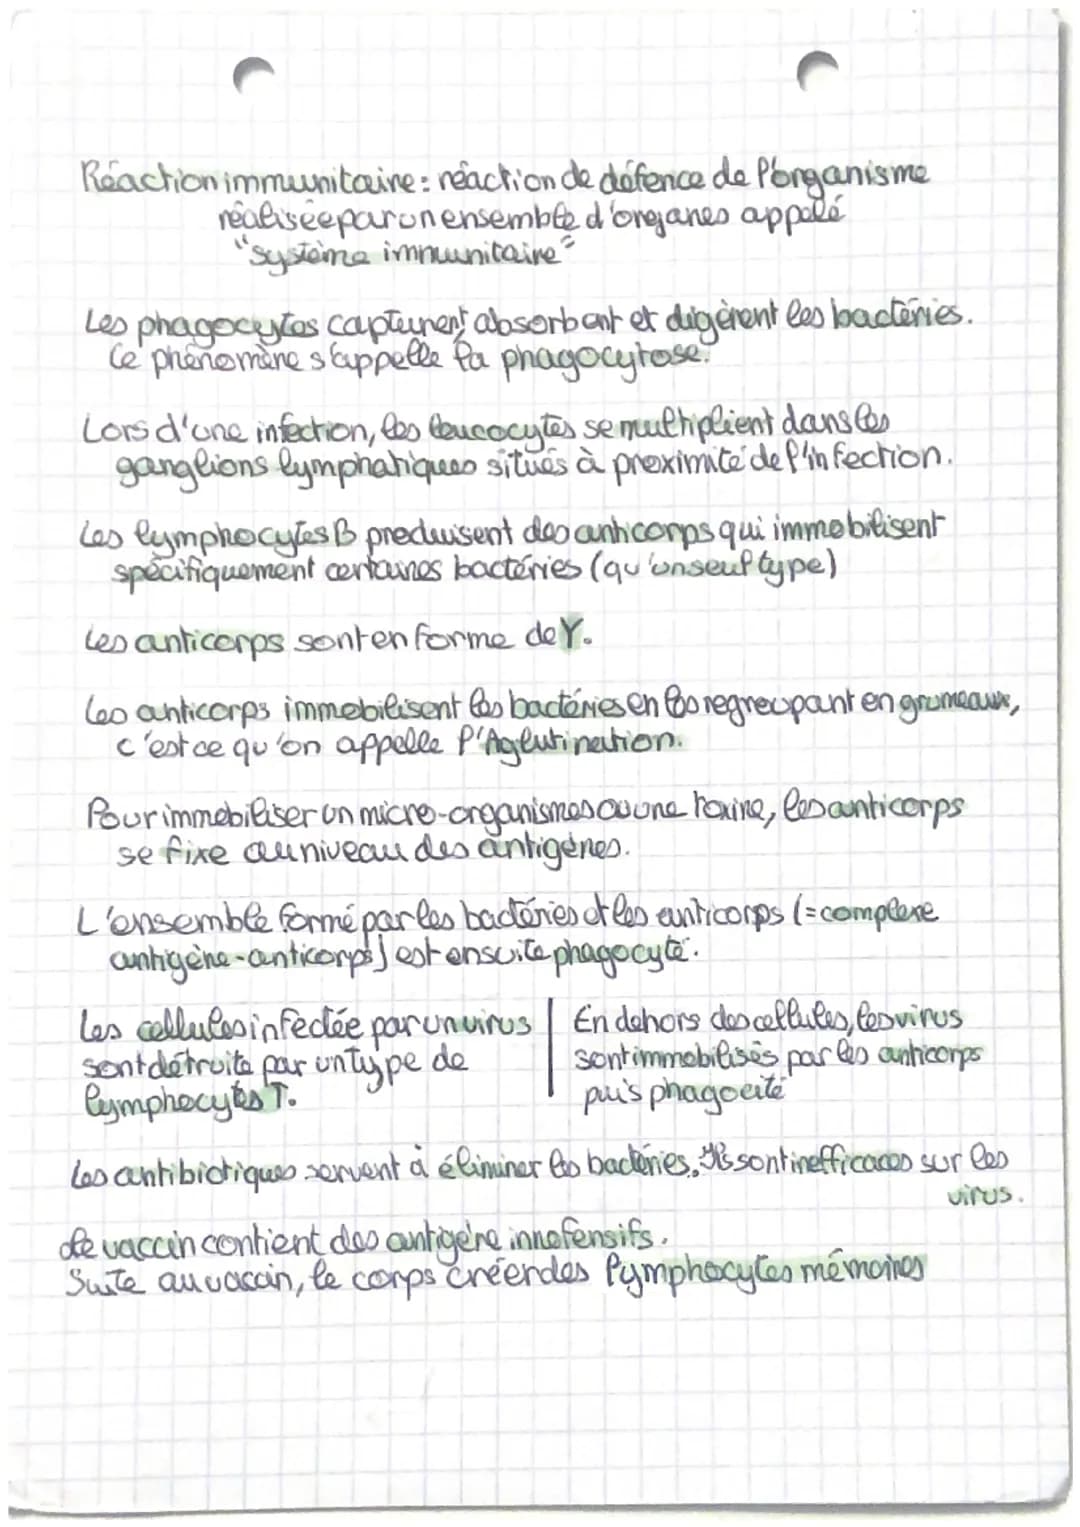 Réaction immunitaire : réaction de défence de l'organisme
réalisée par un ensemble d'organes appelé
"système immunitaire"
Les phagocytes capturent, absorbent et digèrent les bactéries.
Ce phénomène s'appelle la phagocytose.
Lors d'une infection, les leucocytes se multiplient dans les
ganglions lymphatiques situés à proximité de l'infection.
Les lymphocytes B produisent des anticorps qui immobilisent
spécifiquement certaines bactéries (qu'un seul type)
Les anticorps sont en forme de Y.
Les anticorps immobilisent les bactéries en les regroupant en grumeaux,
c'est ce qu'on appelle l'Aglutination.
Pour immobiliser un micro-organismes ou une toxine, les anticorps
se fixe au niveau des antigènes.
L'ensemble formé par les bactéries et les anticorps (=complexe
antigène-anticorps) est ensuite phagocyté.
Les cellules infectée par un virus
sont détruite par un type de
lymphocytes T.
En dehors des cellules, les virus
sont immobilisés par les anticorps
puis phagocité
Les antibiotiques servent à éliminer les bactéries. Ils sont inefficaces sur les
virus.
Le vaccin contient des antigène innofensifs.
Suite au vaccin, le corps créer des lymphocytes mémoires